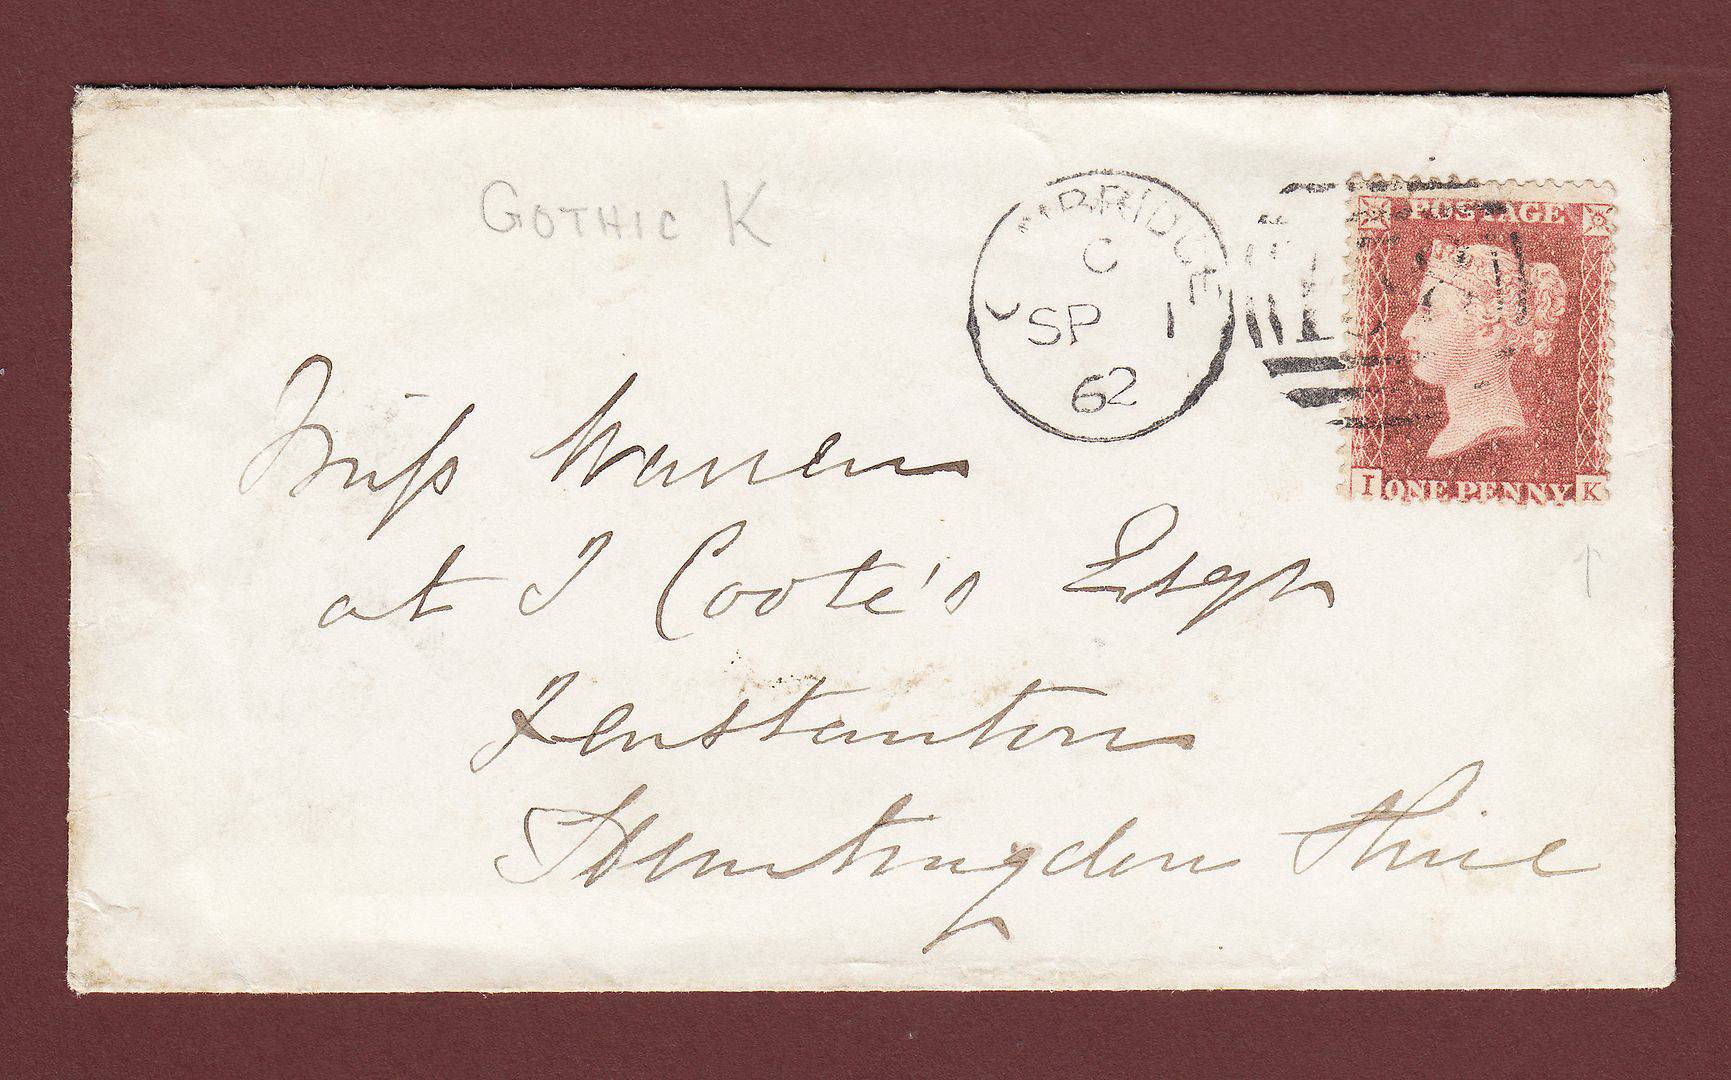 GOTHIC K
CAMBRIDGE
C
SP 1
62
POSTAGE
I ONE PENNY K
Miss Warren
at J Coote's Esqr
Fenstanton
Huntingdon Shire